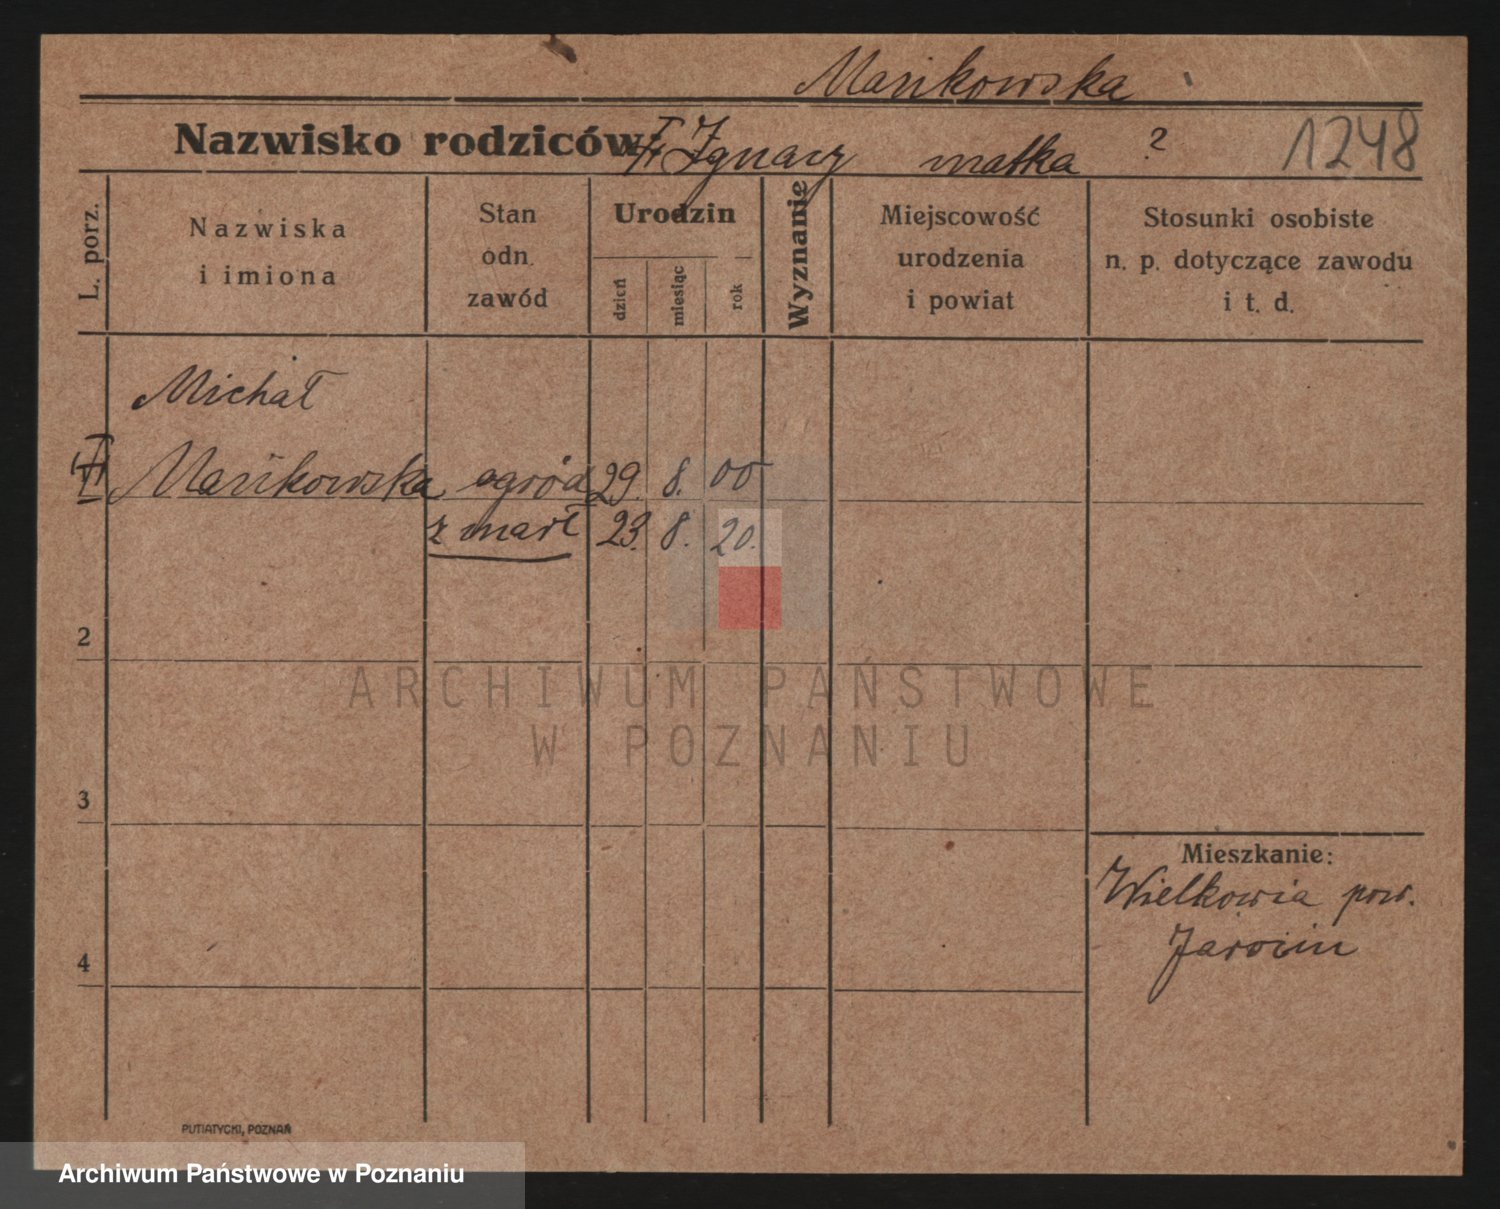 Mańkowska
Nazwisko rodziców Ignacy matka ? 1248
L. porz.
Nazwiska
i imiona
Stan
odn.
zawód
Urodzin
dzień
miesiąc
rok
Wyznanie
Miejscowość
urodzenia
i powiat
Stosunki osobiste
n. p. dotyczące zawodu
i t. d.
Michał
Mańkowska ogród 29. 8. 00
zmarł 23. 8. 20.
2
3
4
Mieszkanie:
Wielkowia pow.
Jarocin
ARCHIWUM PAŃSTWOWE
W POZNANIU
PUTIATYCKI, POZNAŃ
Archiwum Państwowe w Poznaniu